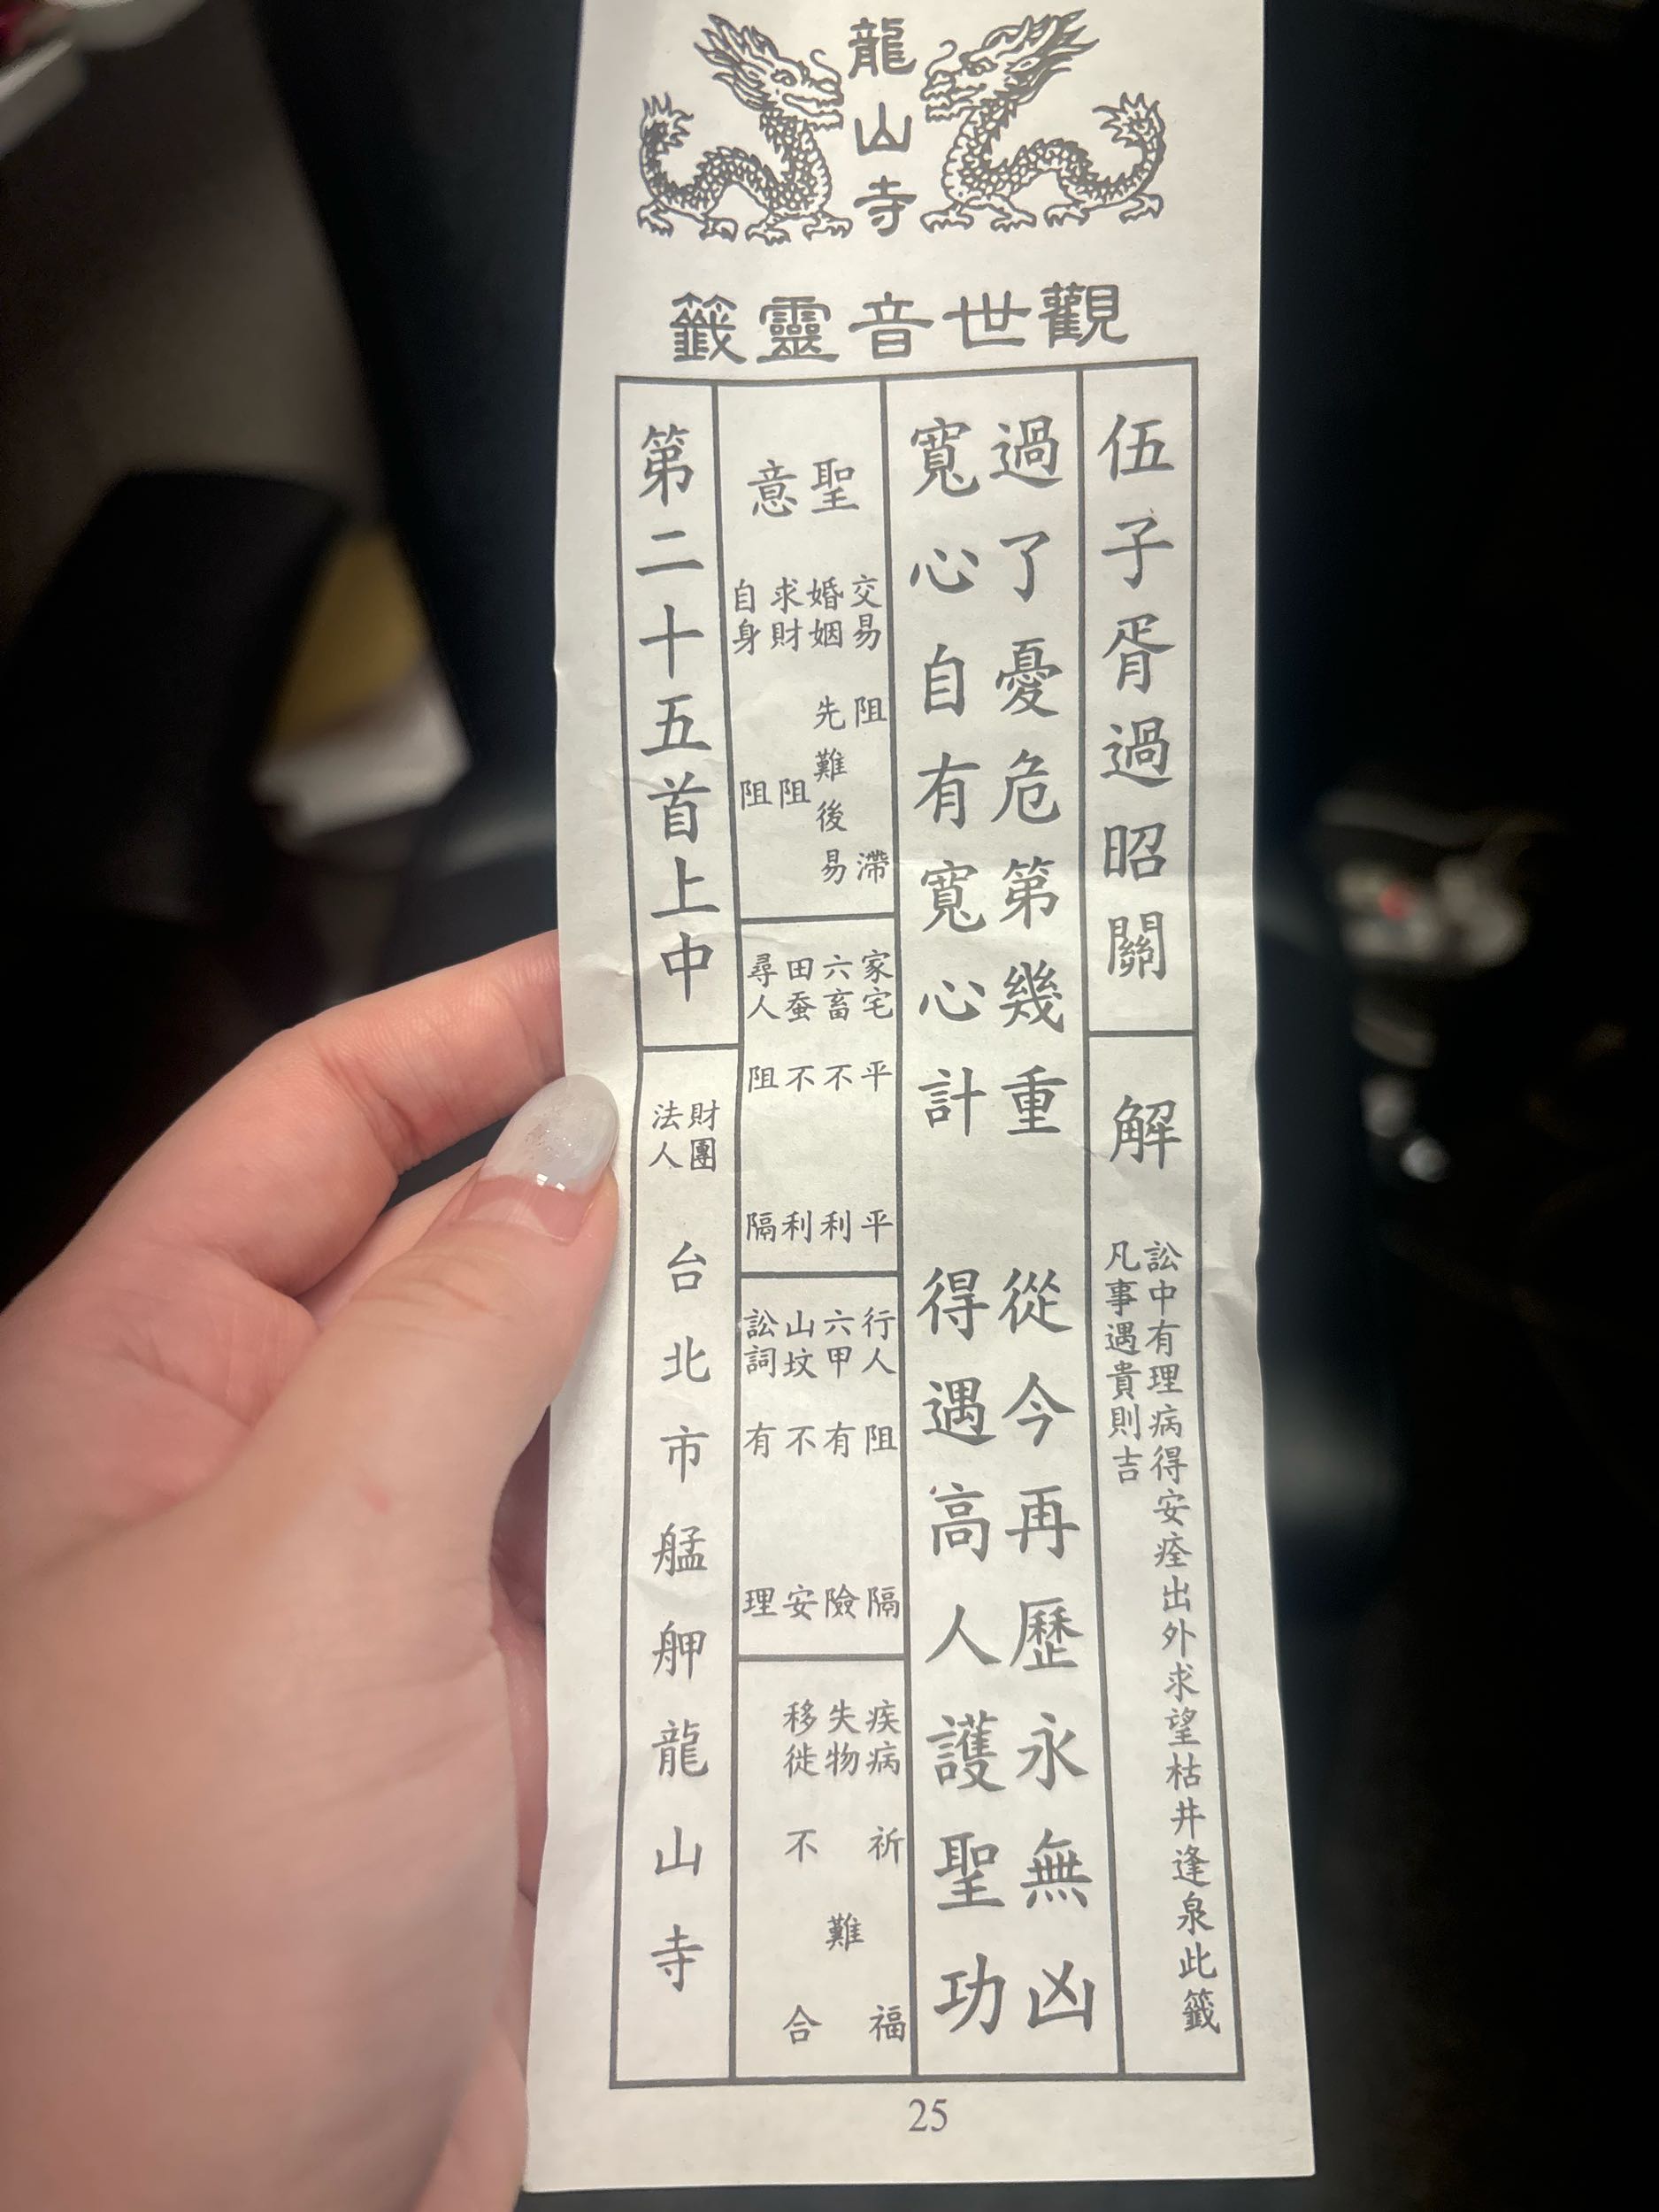 龍山寺
觀世音靈籤
伍子胥過昭關
解
訟中有理病得安痊出外求望枯井逢泉此籤
凡事遇貴則吉
過了憂危第幾重 從今再歷永無凶
寬心自有寬心計 得遇高人護聖功
聖意
交易 阻滯
婚姻 先難後易
求財 阻
自身 阻
家宅 平平
六畜 不利
田蚕 不利
尋人 阻隔
行人 阻隔
六甲 有險
山坟 不安
訟詞 有理
疾病 祈福
失物 難
移徙 不合
第二十五首上中
財團法人
台北市艋舺龍山寺
25